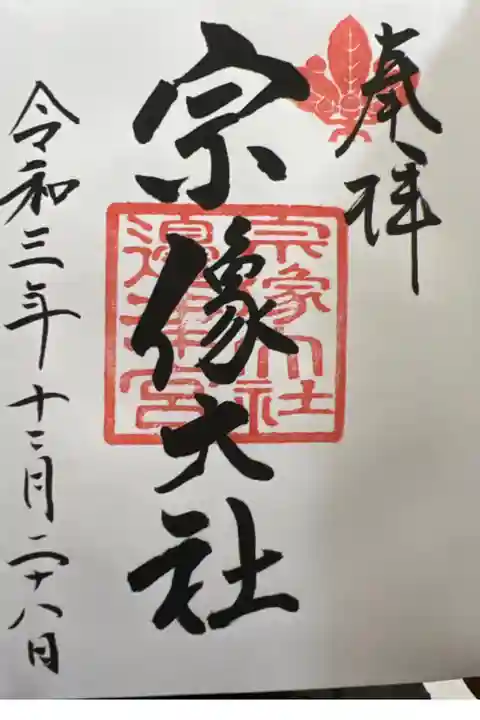 奉拝
宗像大社
宗像大社
邊津宮
令和三年十二月二十八日